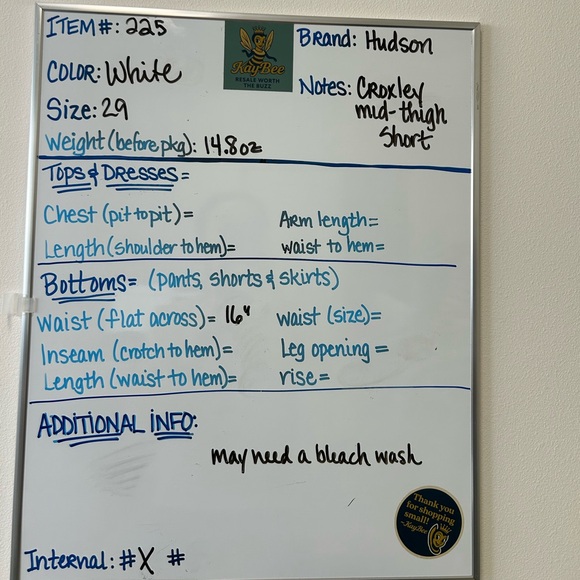 ITEM#: 225
KayBee
RESALE WORTH
THE BUZZ
Brand: Hudson
COLOR: White
Notes: Croxley
mid-thigh
Short
Size: 29
Weight (before pkg): 14.8oz
TOPS & DRESSES=
Chest (pit to pit)=
Arm length=
Length (shoulder to hem)=
waist to hem=
Bottoms= (pants, shorts & skirts)
Waist (flat across)= 16"
waist (size)=
Inseam (crotch to hem)=
Leg opening =
Length (waist to hem)=
rise=
ADDITIONAL INFO:
may need a bleach wash
Thank you
for shopping
small!
~KayBee
Internal: #X #